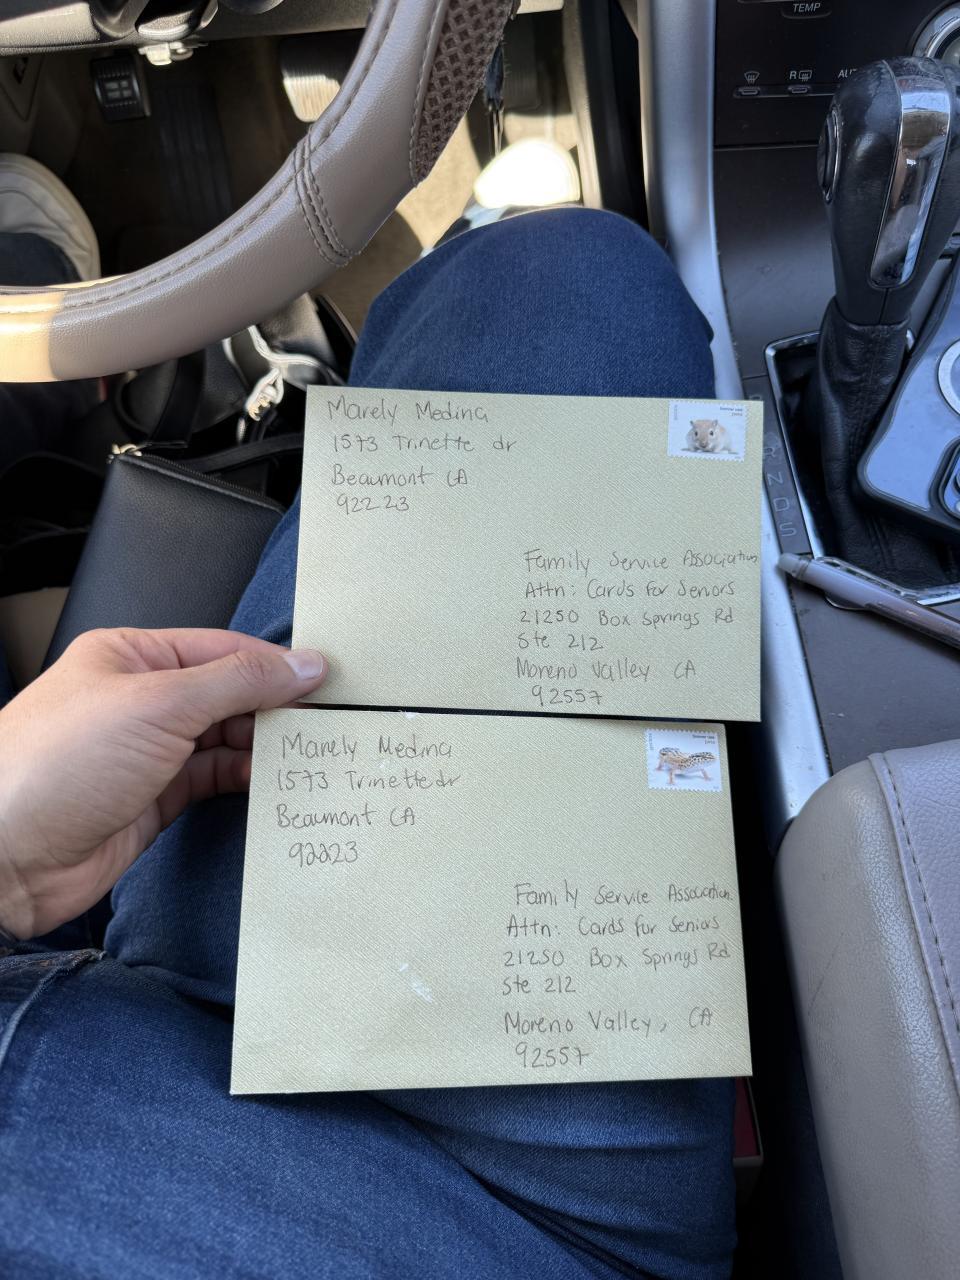 TEMP
R
AUT
Marely Medina
1573 Trinette dr
Beaumont CA
92223
Family Service Association
Attn: Cards for Seniors
21250 Box Springs Rd
Ste 212
Moreno Valley CA
92557
R
N
D
S
Marely Medina
1573 Trinette dr
Beaumont CA
92223
Family Service Association
Attn: Cards for Seniors
21250 Box Springs Rd
Ste 212
Moreno Valley, CA
92557